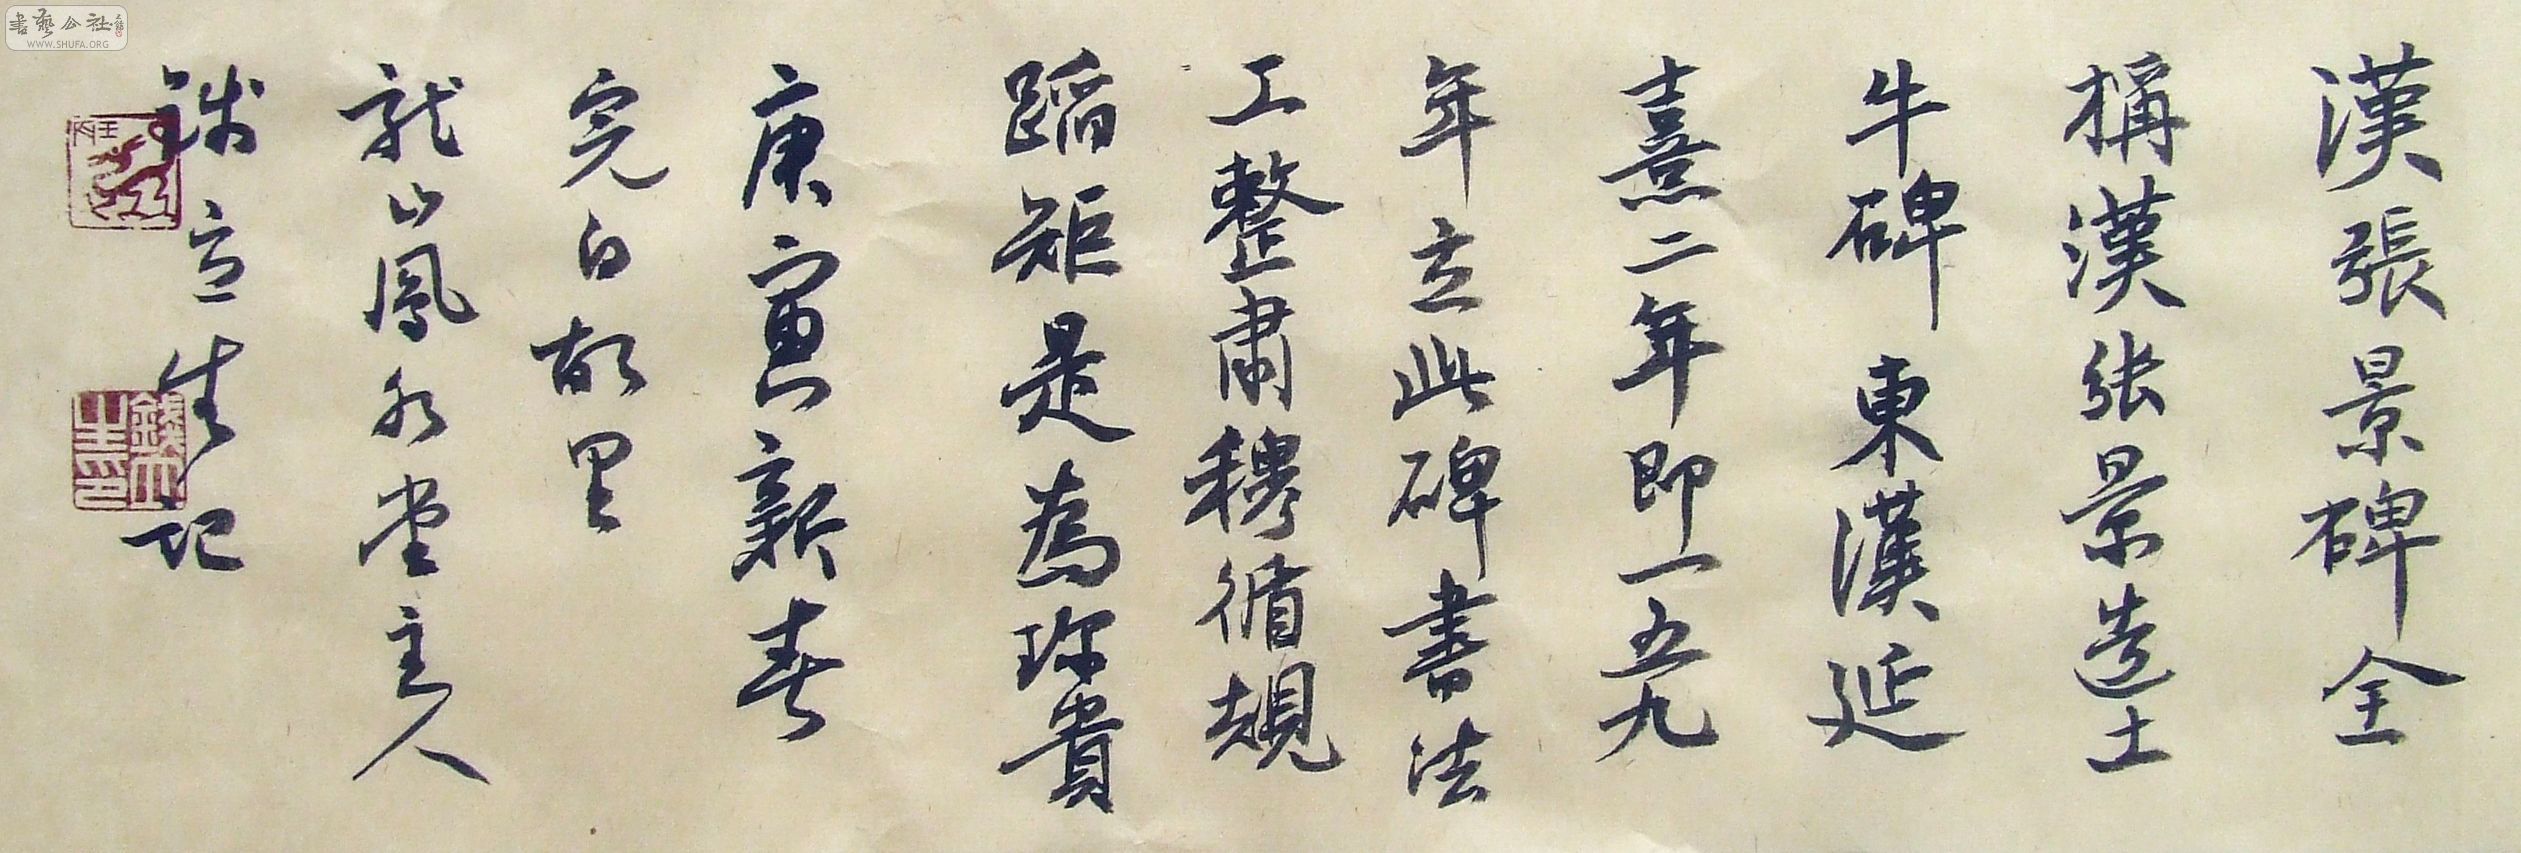 漢張景碑全
稱漢张景造土
牛碑東漢延
熹二年即一五九
年立此碑書法
工整肅穆循規
蹈矩是為珎貴
庚寅新春
完白故里
龍山鳳水堂主人
錢立生記
書藝公社
WWW.SHUFA.ORG